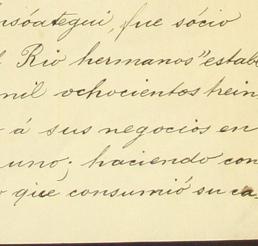 nsóategui, fue sócio
l Rio hermanos" estab
mil ochocientos trein
á sus negocios en
uno; haciendo con
o que consumió su ca-